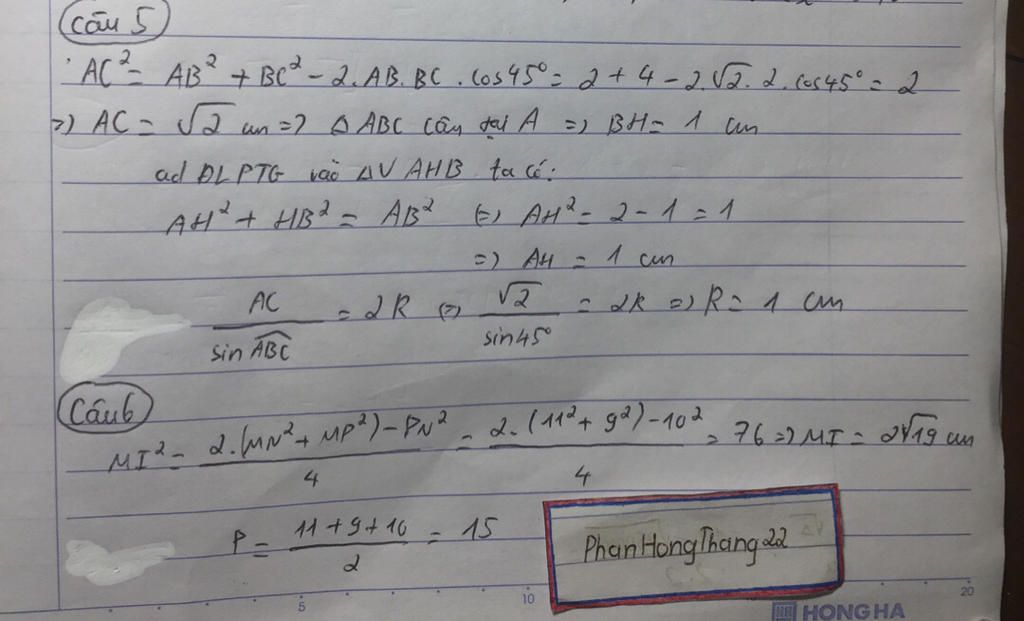 Câu 5
AC² = AB² + BC² - 2.AB.BC.cos45° = 2 + 4 - 2.√2.2.cos45° = 2
=> AC = √2 cm => Δ ABC cân tại A => BH = 1 cm
ad ĐLPTG vào ΔV AHB ta có:
AH² + HB² = AB² <=> AH² = 2 - 1 = 1
=> AH = 1 cm
AC / sin ABC = 2R <=> √2 / sin45° = 2R => R = 1 cm
Câu 6
MI² = 2.(MN² + MP²) - PN² / 4 = 2.(11² + 9²) - 10² / 4 = 76 => MI = 2√19 cm
P = 11 + 9 + 10 / 2 = 15
PhanHongThang22
5 10 20
HONG HA